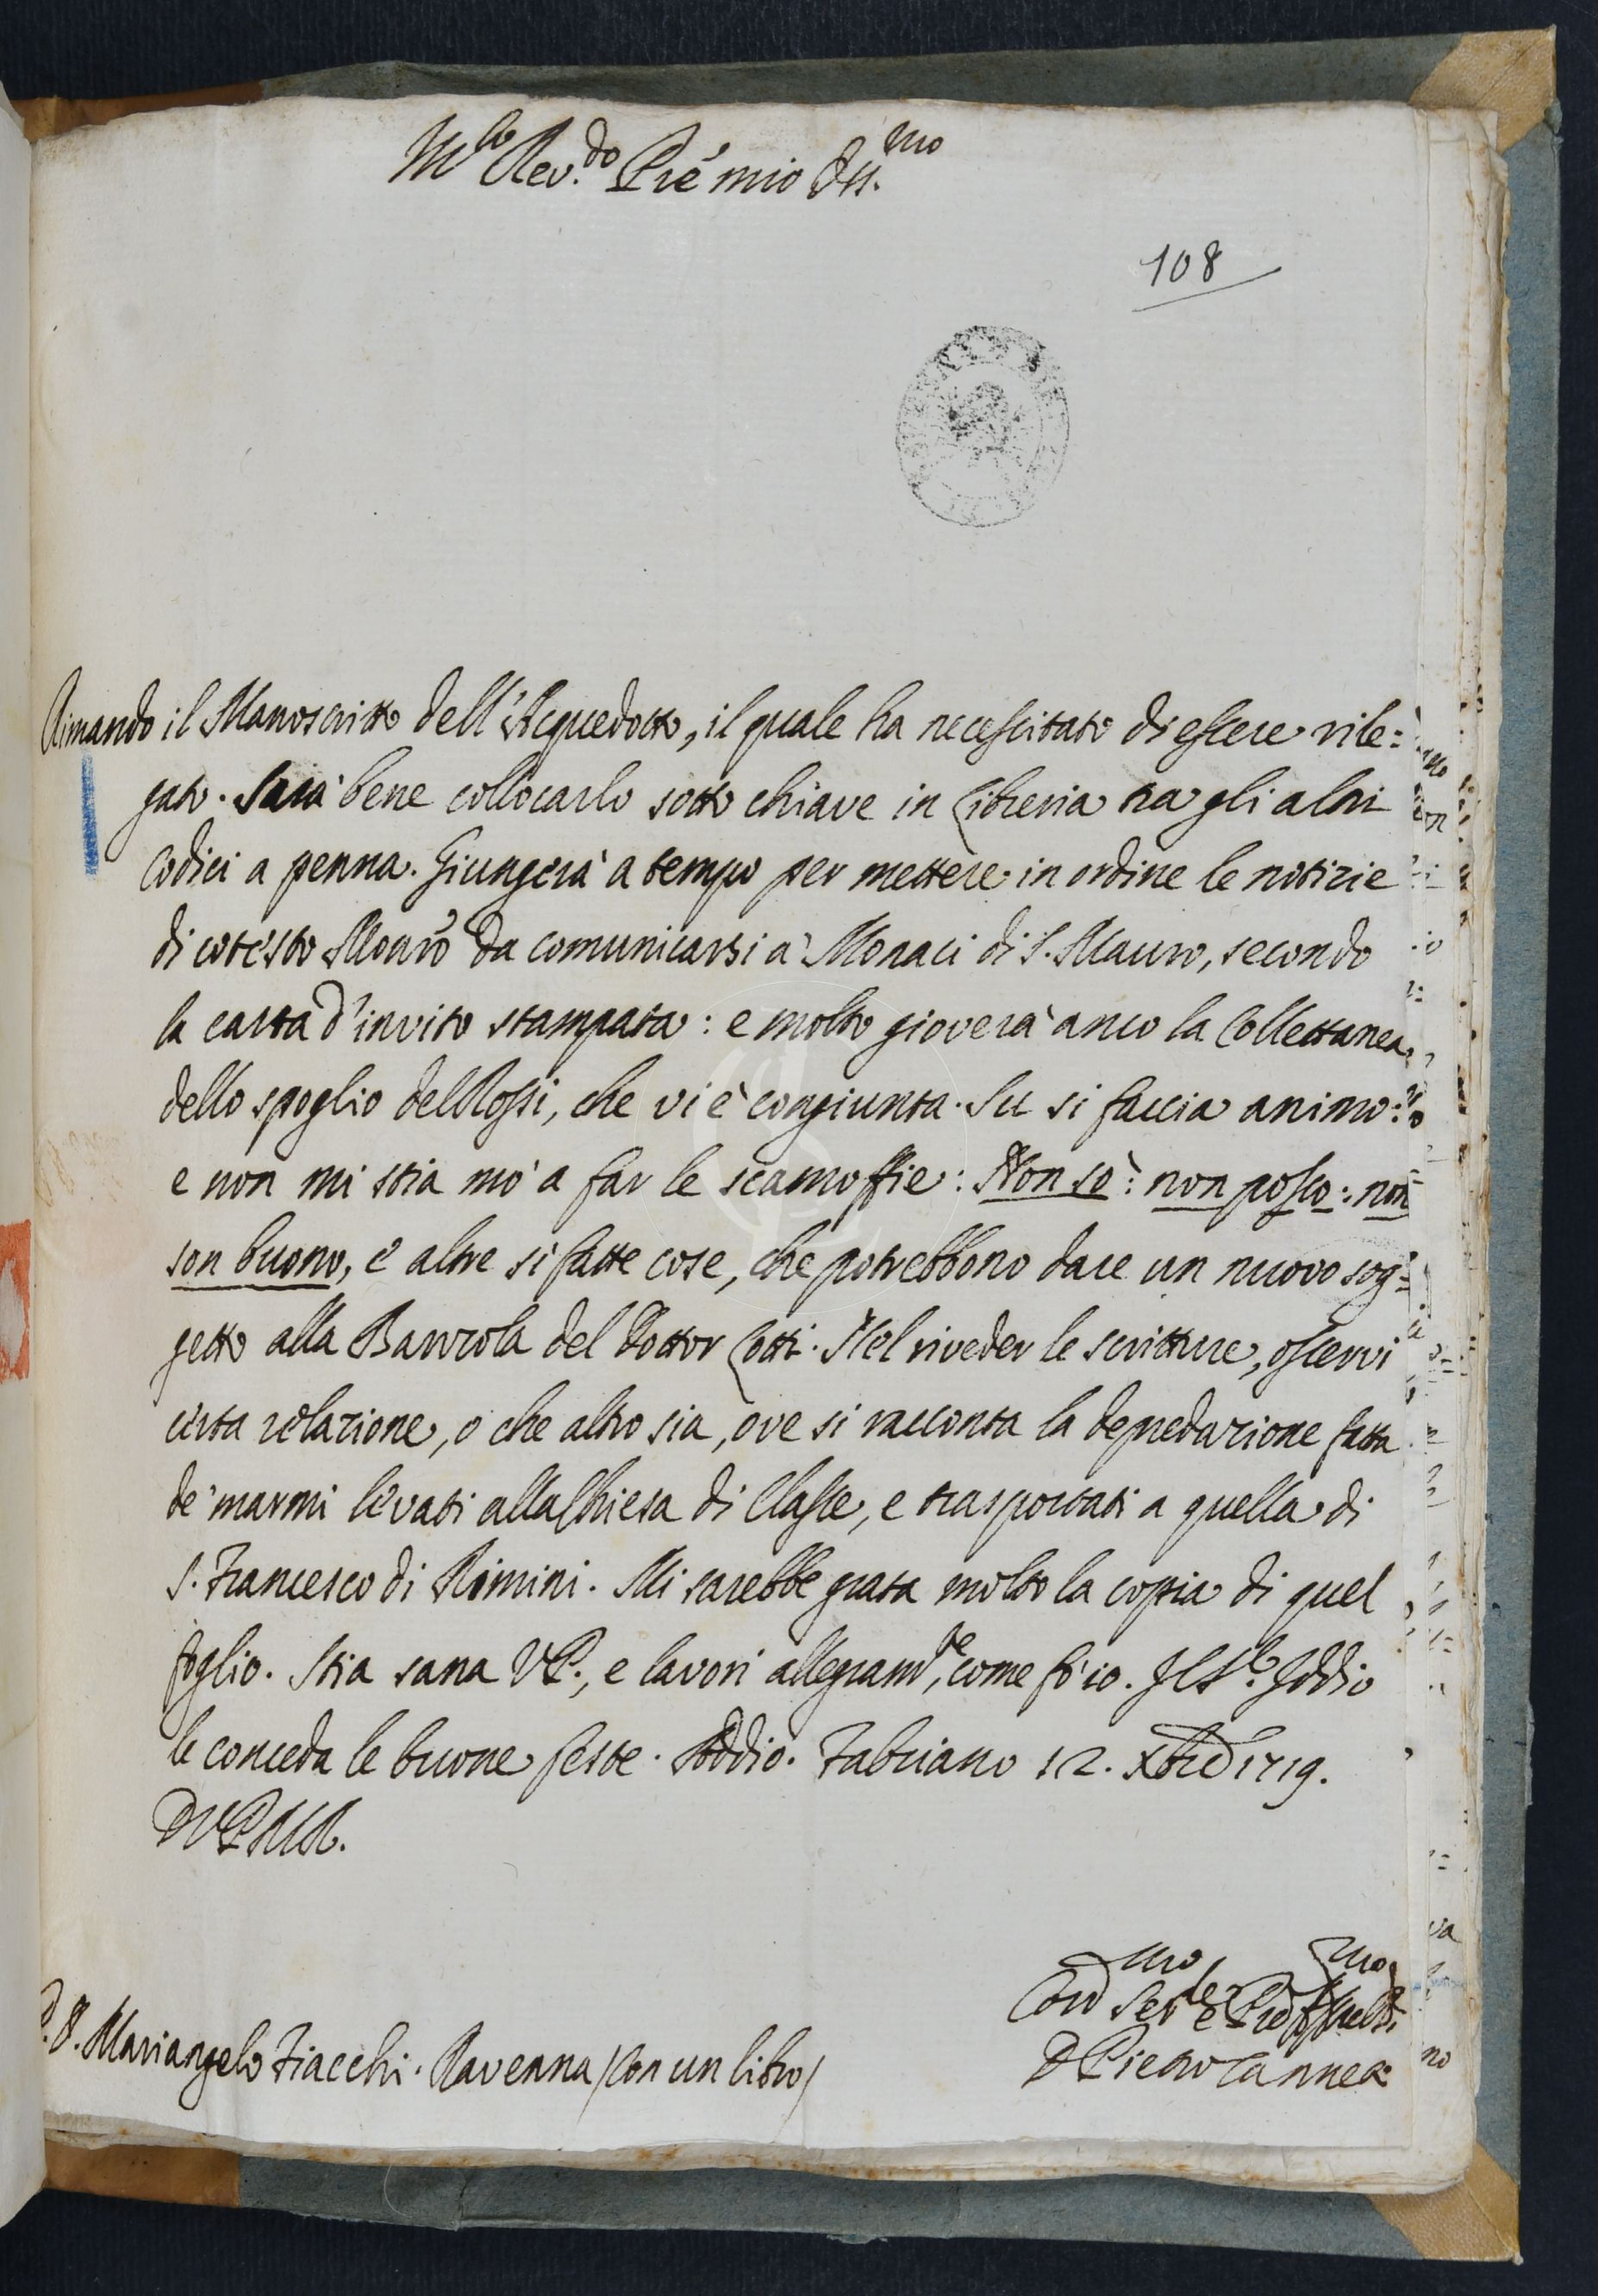 M.to Rev.do Pre mio Oss.mo
108
Rimando il Manoscritto dell'Acquedotto, il quale ha necessitato di essere rile=
gato. Sarà bene collocarlo sotto chiave in Libreria tra gli altri
Codici a penna. Giungerà a tempo per mettere in ordine le notizie
di cotesto Monro da comunicarsi a' Monaci di S. Mauro, secondo
la carta d'invito stampata: e molto gioverà anco la Collettanea
dello spoglio del Rossi, che vi è congiunta. Su si faccia animo:
e non mi stia mò a far le scamoffie: Non sò: non posso: non
son buono, e altre sì fatte cose, che potrebbono dare un nuovo sog=
getto alla Banzola del Dottor Lotti. Nel riveder le scritture, osservi
certa relazione, o che altro sia, ove si racconta la depredazione fatta
de' marmi levati alla Chiesa di Classe, e trasportati a quella di
S. Francesco di Rimini. Mi sarebbe grata molto la copia di quel
foglio. Stia sana V.P., e lavori allegramte, come fò io. Il Sr. Iddio
le conceda le buone feste. Addio. Fabriano 12. Xbre 1719.
DVPMR.
P. D. Mariangelo Fiacchi. Ravenna (Con un libro)
D Pietro Canneti